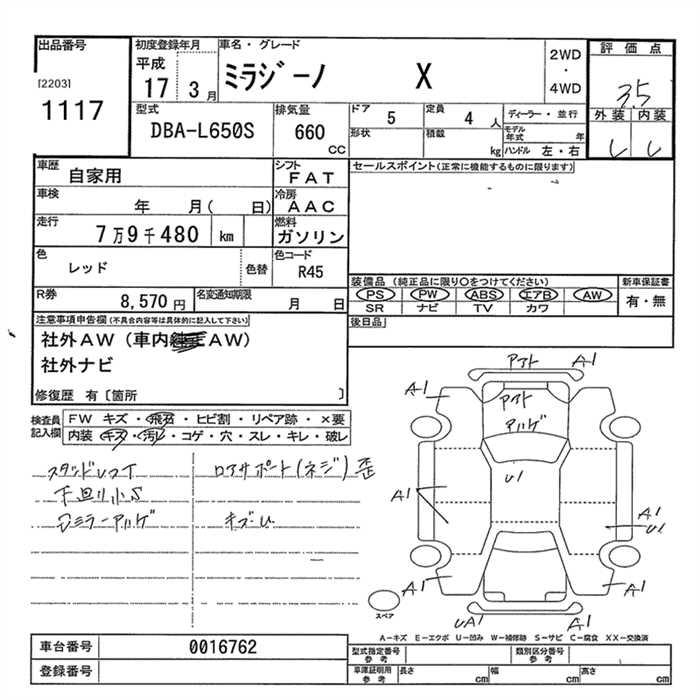 出品番号
[2203]
1117
初度登録年月
平成
17 3 月
車名・グレード
ミラジーノ X
2WD
・
4WD
評価点
3.5
外装 内装
型式
DBA-L650S
排気量
660
CC
ドア 5
定員 4 人
形状
積載 kg
ディーラー・並行
モデル年式 年
ハンドル 左・右
車歴
自家用
シフト
FAT
車検
年 月( 日)
冷房
AAC
走行
7万9千480 km
燃料
ガソリン
色
レッド
色替
色コード
R45
R券
8,570 円
名変通知期限
月 日
セールスポイント(正常に機能するものに限ります)
装備品 (純正品に限り○をつけてください)
PS PW ABS エアB AW
SR ナビ TV カワ
新車保証書
有・無
後日品
注意事項申告欄(不具合内容等は具体的に記入して下さい)
社外AW(車内AW)
社外ナビ
修復歴 有〔箇所 〕
検査員記入欄
FW キズ・飛石・ヒビ割・リペア跡・×要
内装・キズ・汚レ・コゲ・穴・スレ・キレ・破レ
スタッドレスT
下回り小S
ミラーアルゲ
ロアサポート(ネジ)歪
キズU
アト A1
A1 アト
アルゲ
U1
A1
A1
U1
A1 A1
UA1 A1
スペア
A－キズ E－エクボ U－凹み W－補修跡 S－サビ C－腐食 XX－交換済
車台番号
0016762
登録番号
型式指定番号
参考
類別区分番号
参考
車庫証明用
参考
長さ cm 幅 cm 高さ cm